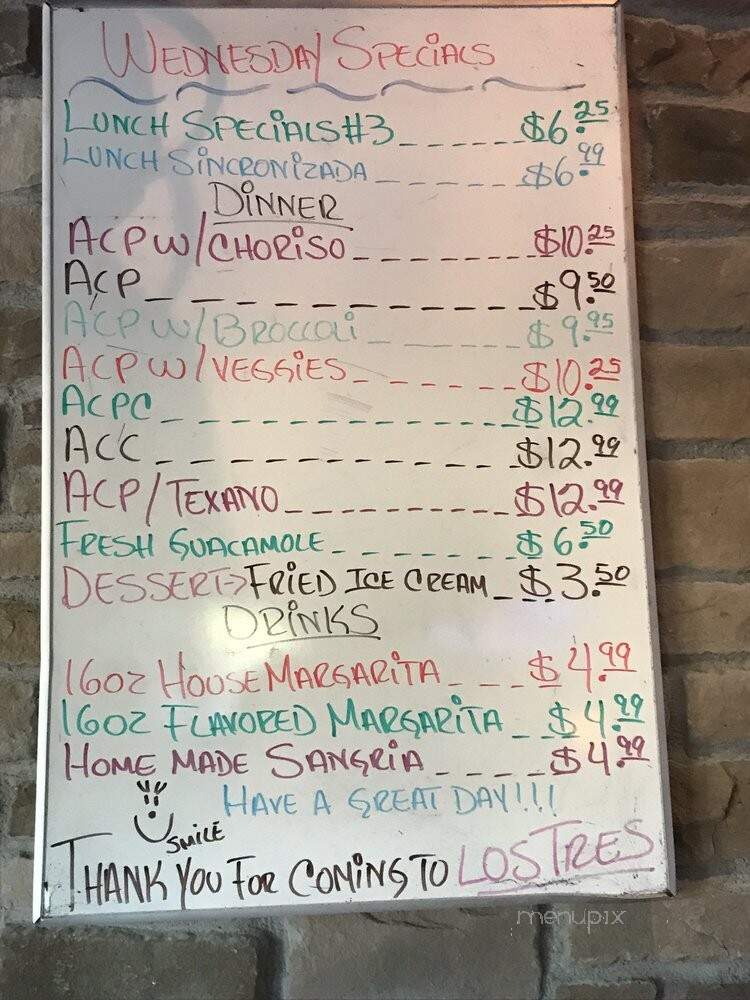 WEDNESDAY SPECIALS
LUNCH SPECIALS #3 _ _ _ _ _ _ $6.25
LUNCH SINCRONIZADA _ _ _ _ _ _ $6.99
DINNER
ACP W/CHORISO _ _ _ _ _ _ _ $10.25
ACP _ _ _ _ _ _ _ _ _ _ $9.50
ACP W/BROCCOLI _ _ _ _ _ $9.95
ACP W/VEGGIES _ _ _ _ _ _ $10.25
ACPC _ _ _ _ _ _ _ _ _ _ _ $12.99
ACC _ _ _ _ _ _ _ _ _ _ _ $12.99
ACP/TEXANO _ _ _ _ _ _ _ _ $12.99
FRESH GUACAMOLE _ _ _ _ _ _ $6.50
DESSERT->FRIED ICE CREAM _ $3.50
DRINKS
16OZ HOUSE MARGARITA _ _ _ $4.99
16OZ FLAVORED MARGARITA _ $4.99
HOME MADE SANGRIA _ _ _ _ $4.99
HAVE A GREAT DAY!!!
SMILE
THANK YOU FOR COMING TO LOS TRES
menupix